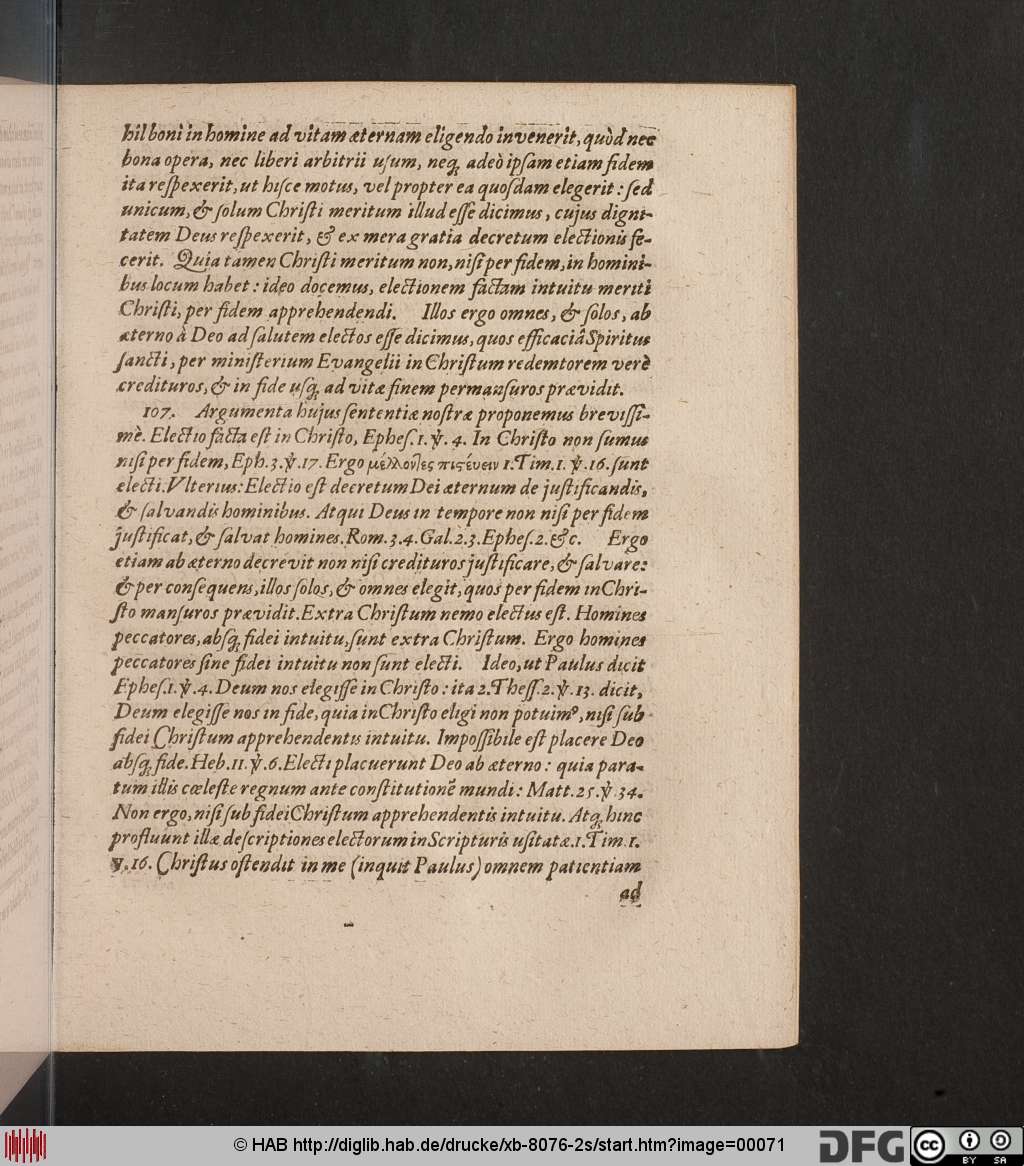 hil boni in homine ad vitam æternam eligendo invenerit, quòd nec
bona opera, nec liberi arbitrii uſum, neq; adeò ipſam etiam fidem
ita reſpexerit, ut hiſce motus, vel propter ea quoſdam elegerit: ſed
unicum, & ſolum Chriſti meritum illud eſſe dicimus, cujus digni-
tatem Deus reſpexerit, & ex mera gratia decretum electionis fe-
cerit. Quia tamen Chriſti meritum non, niſi per fidem, in homini-
bus locum habet: ideo docemus, electionem factam intuitu meriti
Chriſti, per fidem apprehendendi. Illos ergo omnes, & ſolos, ab
æterno à Deo ad ſalutem electos eſſe dicimus, quos efficaciâ Spiritus
ſancti, per miniſterium Evangelii in Chriſtum redemtorem verè
credituros, & in fide uſq; ad vitæ finem permanſuros prævidit.
107. Argumenta hujus ſententiæ noſtræ proponemus breviſſi-
mè. Electio facta eſt in Chriſto, Epheſ. 1. ℣. 4. In Chriſto non ſumus
niſi per fidem, Eph. 3. ℣. 17. Ergo μέλλοντες πιϛέυειν 1. Tim. 1. ℣. 16. ſunt
electi. Vlterius: Electio eſt decretum Dei æternum de juſtificandis,
& ſalvandis hominibus. Atqui Deus in tempore non niſi per fidem
juſtificat, & ſalvat homines. Rom. 3. 4. Gal. 2. 3. Epheſ. 2. &c. Ergo
etiam ab æterno decrevit non niſi credituros juſtificare, & ſalvare:
& per conſequens, illos ſolos, & omnes elegit, quos per fidem in Chri-
ſto manſuros prævidit. Extra Chriſtum nemo electus eſt. Homines
peccatores, abſq; fidei intuitu, ſunt extra Chriſtum. Ergo homines
peccatores ſine fidei intuitu non ſunt electi. Ideo, ut Paulus dicit
Epheſ. 1. ℣. 4. Deum nos elegiſſe in Chriſto: ita 2. Theſſ. 2. ℣. 13. dicit,
Deum elegiſſe nos in fide, quia in Chriſto eligi non potuimꝰ, niſi ſub
fidei Chriſtum apprehendentis intuitu. Impoſſibile eſt placere Deo
abſq; fide. Heb. 11. ℣. 6. Electi placuerunt Deo ab æterno: quia para-
tum illis cœleſte regnum ante conſtitutionẽ mundi: Matt. 25. ℣. 34.
Non ergo, niſi ſub fidei Chriſtum apprehendentis intuitu. Atq; hinc
profluunt illæ deſcriptiones electorum in Scripturis uſitatæ. 1. Tim. 1.
℣. 16. Chriſtus oſtendit in me (inquit Paulus) omnem patientiam
ad
© HAB http://diglib.hab.de/drucke/xb-8076-2s/start.htm?image=00071
DFG
cc BY SA